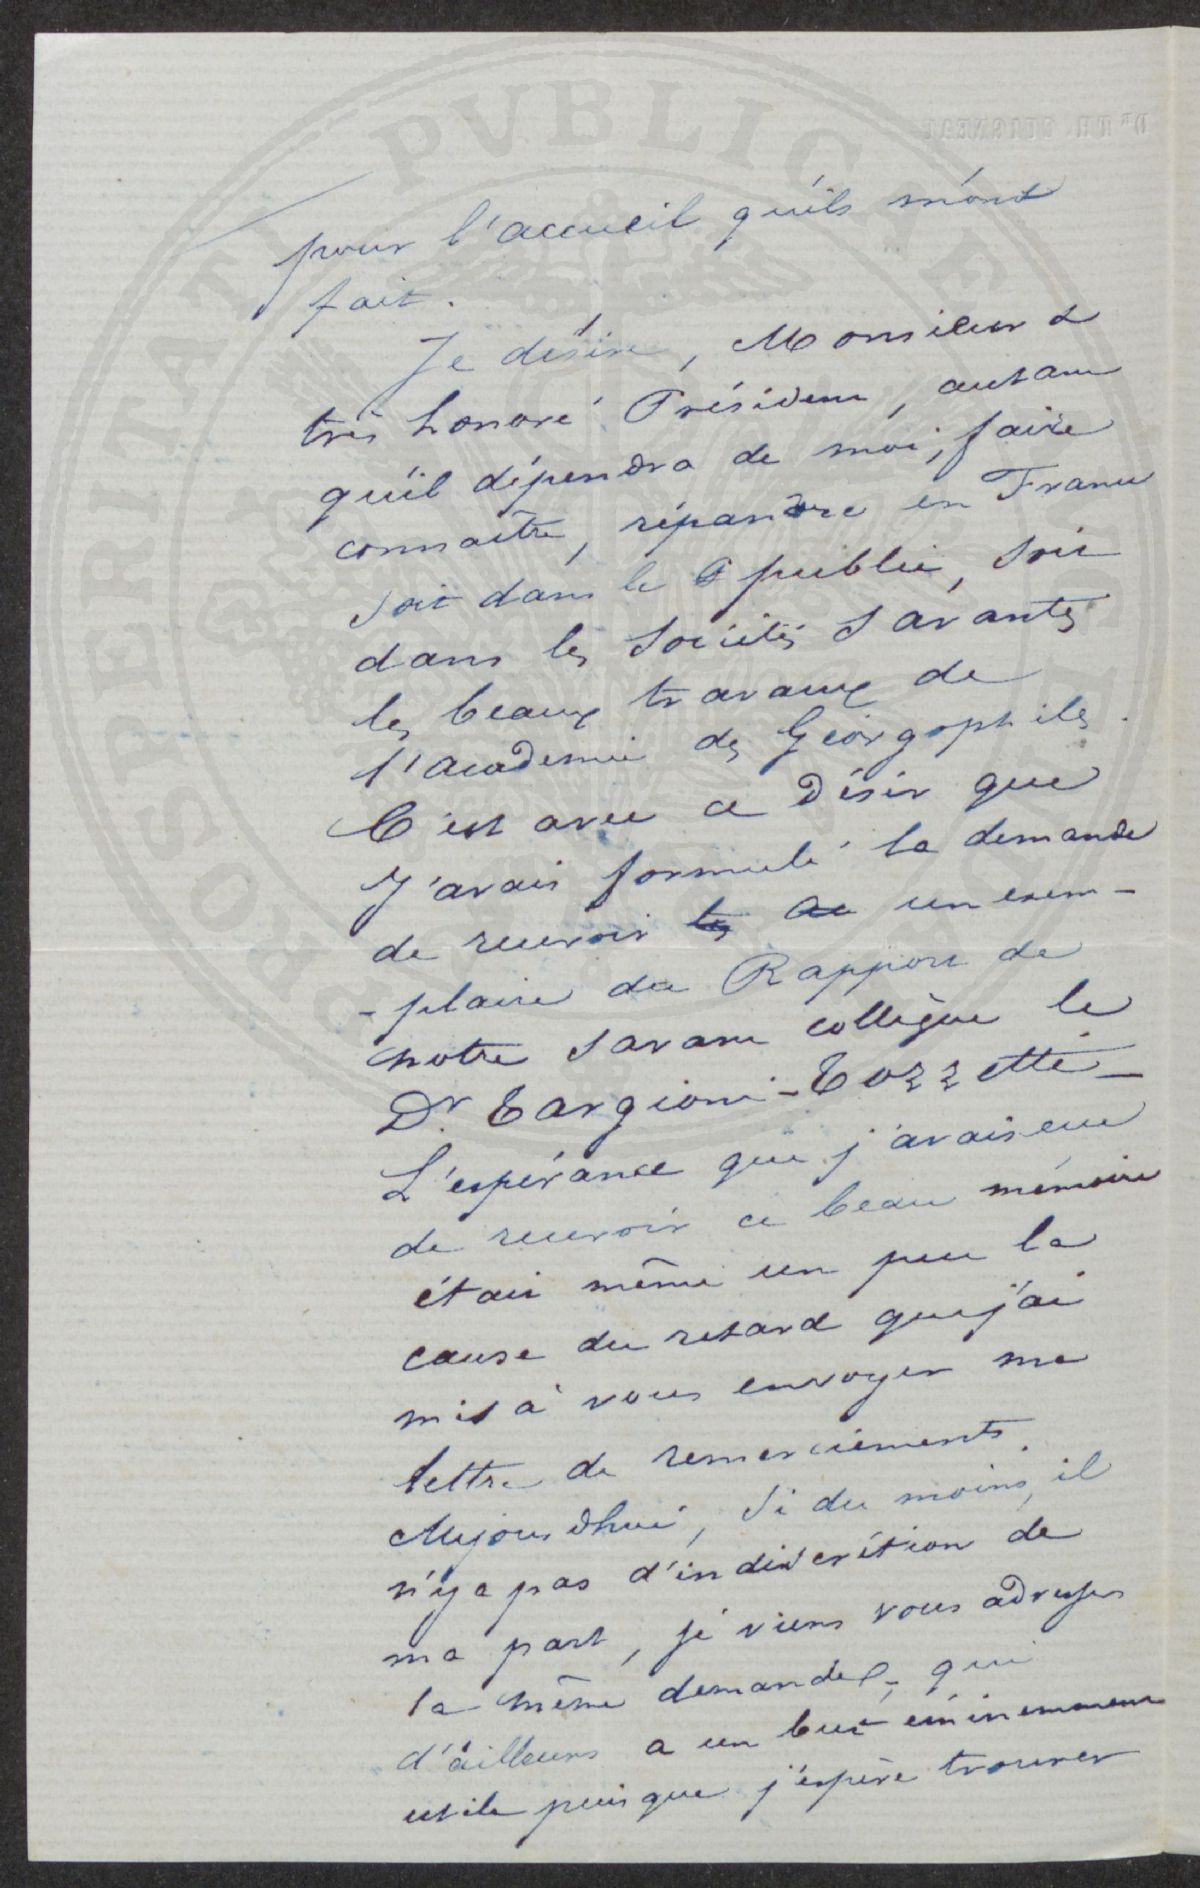 pour l'accueil qu'ils m'ont
fait.
Je désire, Monsieur &
très honoré Président, autant
qu'il dépendra de moi, faire
connaître, répandre en France
soit dans le public, soit
dans les Sociétés Savantes
les beaux travaux de
l'académie des Géorgophiles.
C'est avec ce Désir que
j'avais formulé la demande
de recevoir un exem-
-plaire du Rapport de
notre savant collègue le
Dr. Targioni-Tozzetti-
L'espérance que j'avais eue
de recevoir ce beau mémoire
était même un peu la
cause du retard que j'ai
mis à vous envoyer ma
lettre de remerciements.
Aujourdhui, si du moins, il
n'y a pas d'indiscrétion de
ma part, je viens vous adresser
la même demande, qui
d'ailleurs a un but éminemment
utile puisque j'espère trouver
PVBLICAE
PROSPERITATI